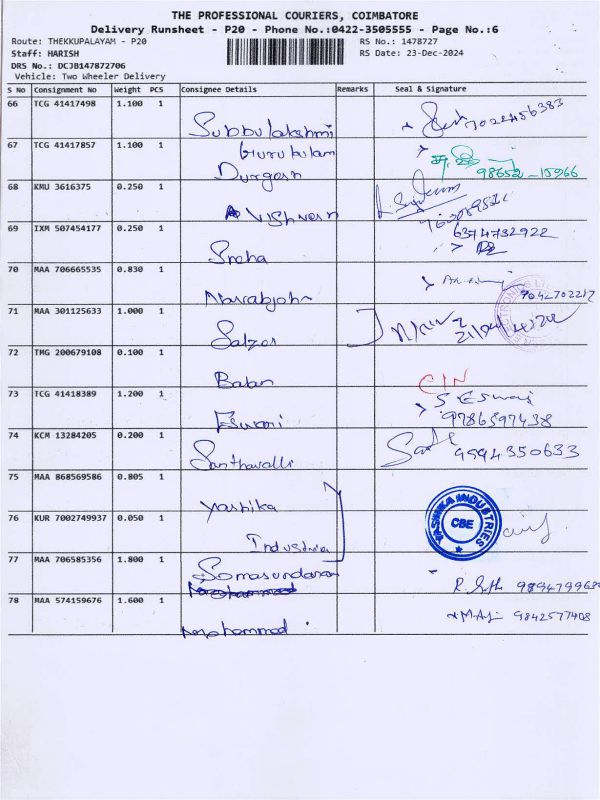 THE PROFESSIONAL COURIERS, COIMBATORE
Delivery Runsheet - P20 - Phone No.:0422-3505555 - Page No.:6
Route: THEKKUPALAYAM - P20
RS No.: 1478727
Staff: HARISH
RS Date: 23-Dec-2024
DRS No.: DCJB147872706
Vehicle: Two Wheeler Delivery
S No Consignment No Weight PCS Consignee Details Remarks Seal & Signature
66 TCG 41417498 1.100 1 Subbulakshmi 7022456383
67 TCG 41417857 1.100 1 Gurukulam
Durgesh 98652-15966
68 KMU 3616375 0.250 1 Vishwesh
69 IXM 507454177 0.250 1 Sneha 6374732922
70 MAA 706665535 0.830 1 9042702217
71 MAA 301125633 1.000 1 Salzer
72 TMG 200679108 0.100 1 Balan CIN
73 TCG 41418389 1.200 1 Eswari S Eswari
9786397438
74 KCM 13284205 0.200 1 Santhavalli 9594350633
75 MAA 868569586 0.805 1 Yashika
76 KUR 7002749937 0.050 1 Industries YASHIKA INDUSTRIES CBE
77 MAA 706585356 1.800 1 Somasundaram
78 MAA 574159676 1.600 1 Mohammed 9842577408